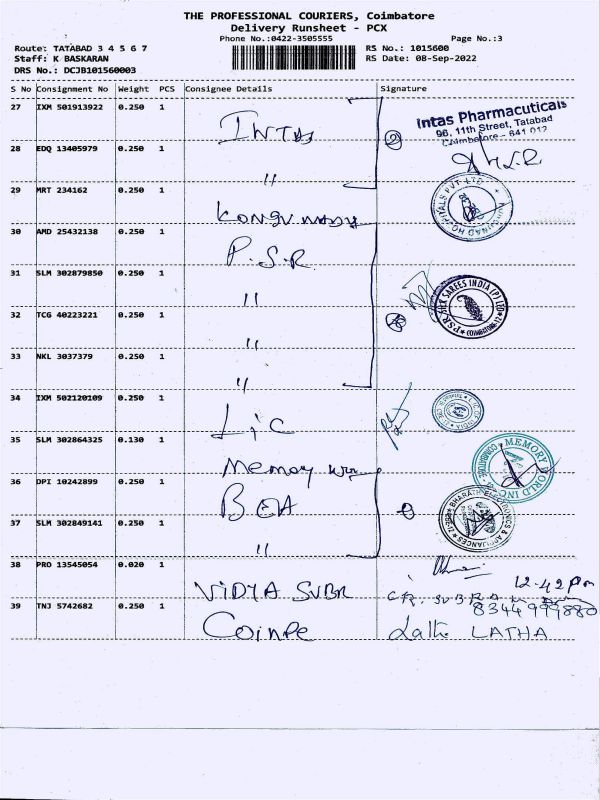 THE PROFESSIONAL COURIERS, Coimbatore
Delivery Runsheet - PCX
Phone No.:0422-3505555 Page No.:3
Route: TATABAD 3 4 5 6 7 RS No.: 1015600
Staff: K BASKARAN RS Date: 08-Sep-2022
DRS No.: DCJB101560003
S No Consignment No Weight PCS Consignee Details Signature
27 IXM 501913922 0.250 1 INTAS
Intas Pharmacuticals
96, 11th Street, Tatabad
Coimbatore - 641 012
28 EDQ 13405979 0.250 1 "
29 MRT 234162 0.250 1 KONGUNADU
KONGUNAD HOSPITALS PVT LTD
30 AMD 25432138 0.250 1 P.S.R
31 SLM 302879850 0.250 1 "
P.S.R SILK SAREES INDIA (P) LTD COIMBATORE-12
32 TCG 40223221 0.250 1 "
33 NKL 3037379 0.250 1 "
34 IXM 502120109 0.250 1 Lic
35 SLM 302864325 0.130 1 Memory
MEMORY WORLD INC. COIMBATORE
36 DPI 10242899 0.250 1
BHARATH ELECTRONICS & APPLIANCES
37 SLM 302849141 0.250 1 "
38 PRO 13545054 0.020 1 VIDYA SUBR
12-42 Pm
8344999880
39 TNJ 5742682 0.250 1 LATHA